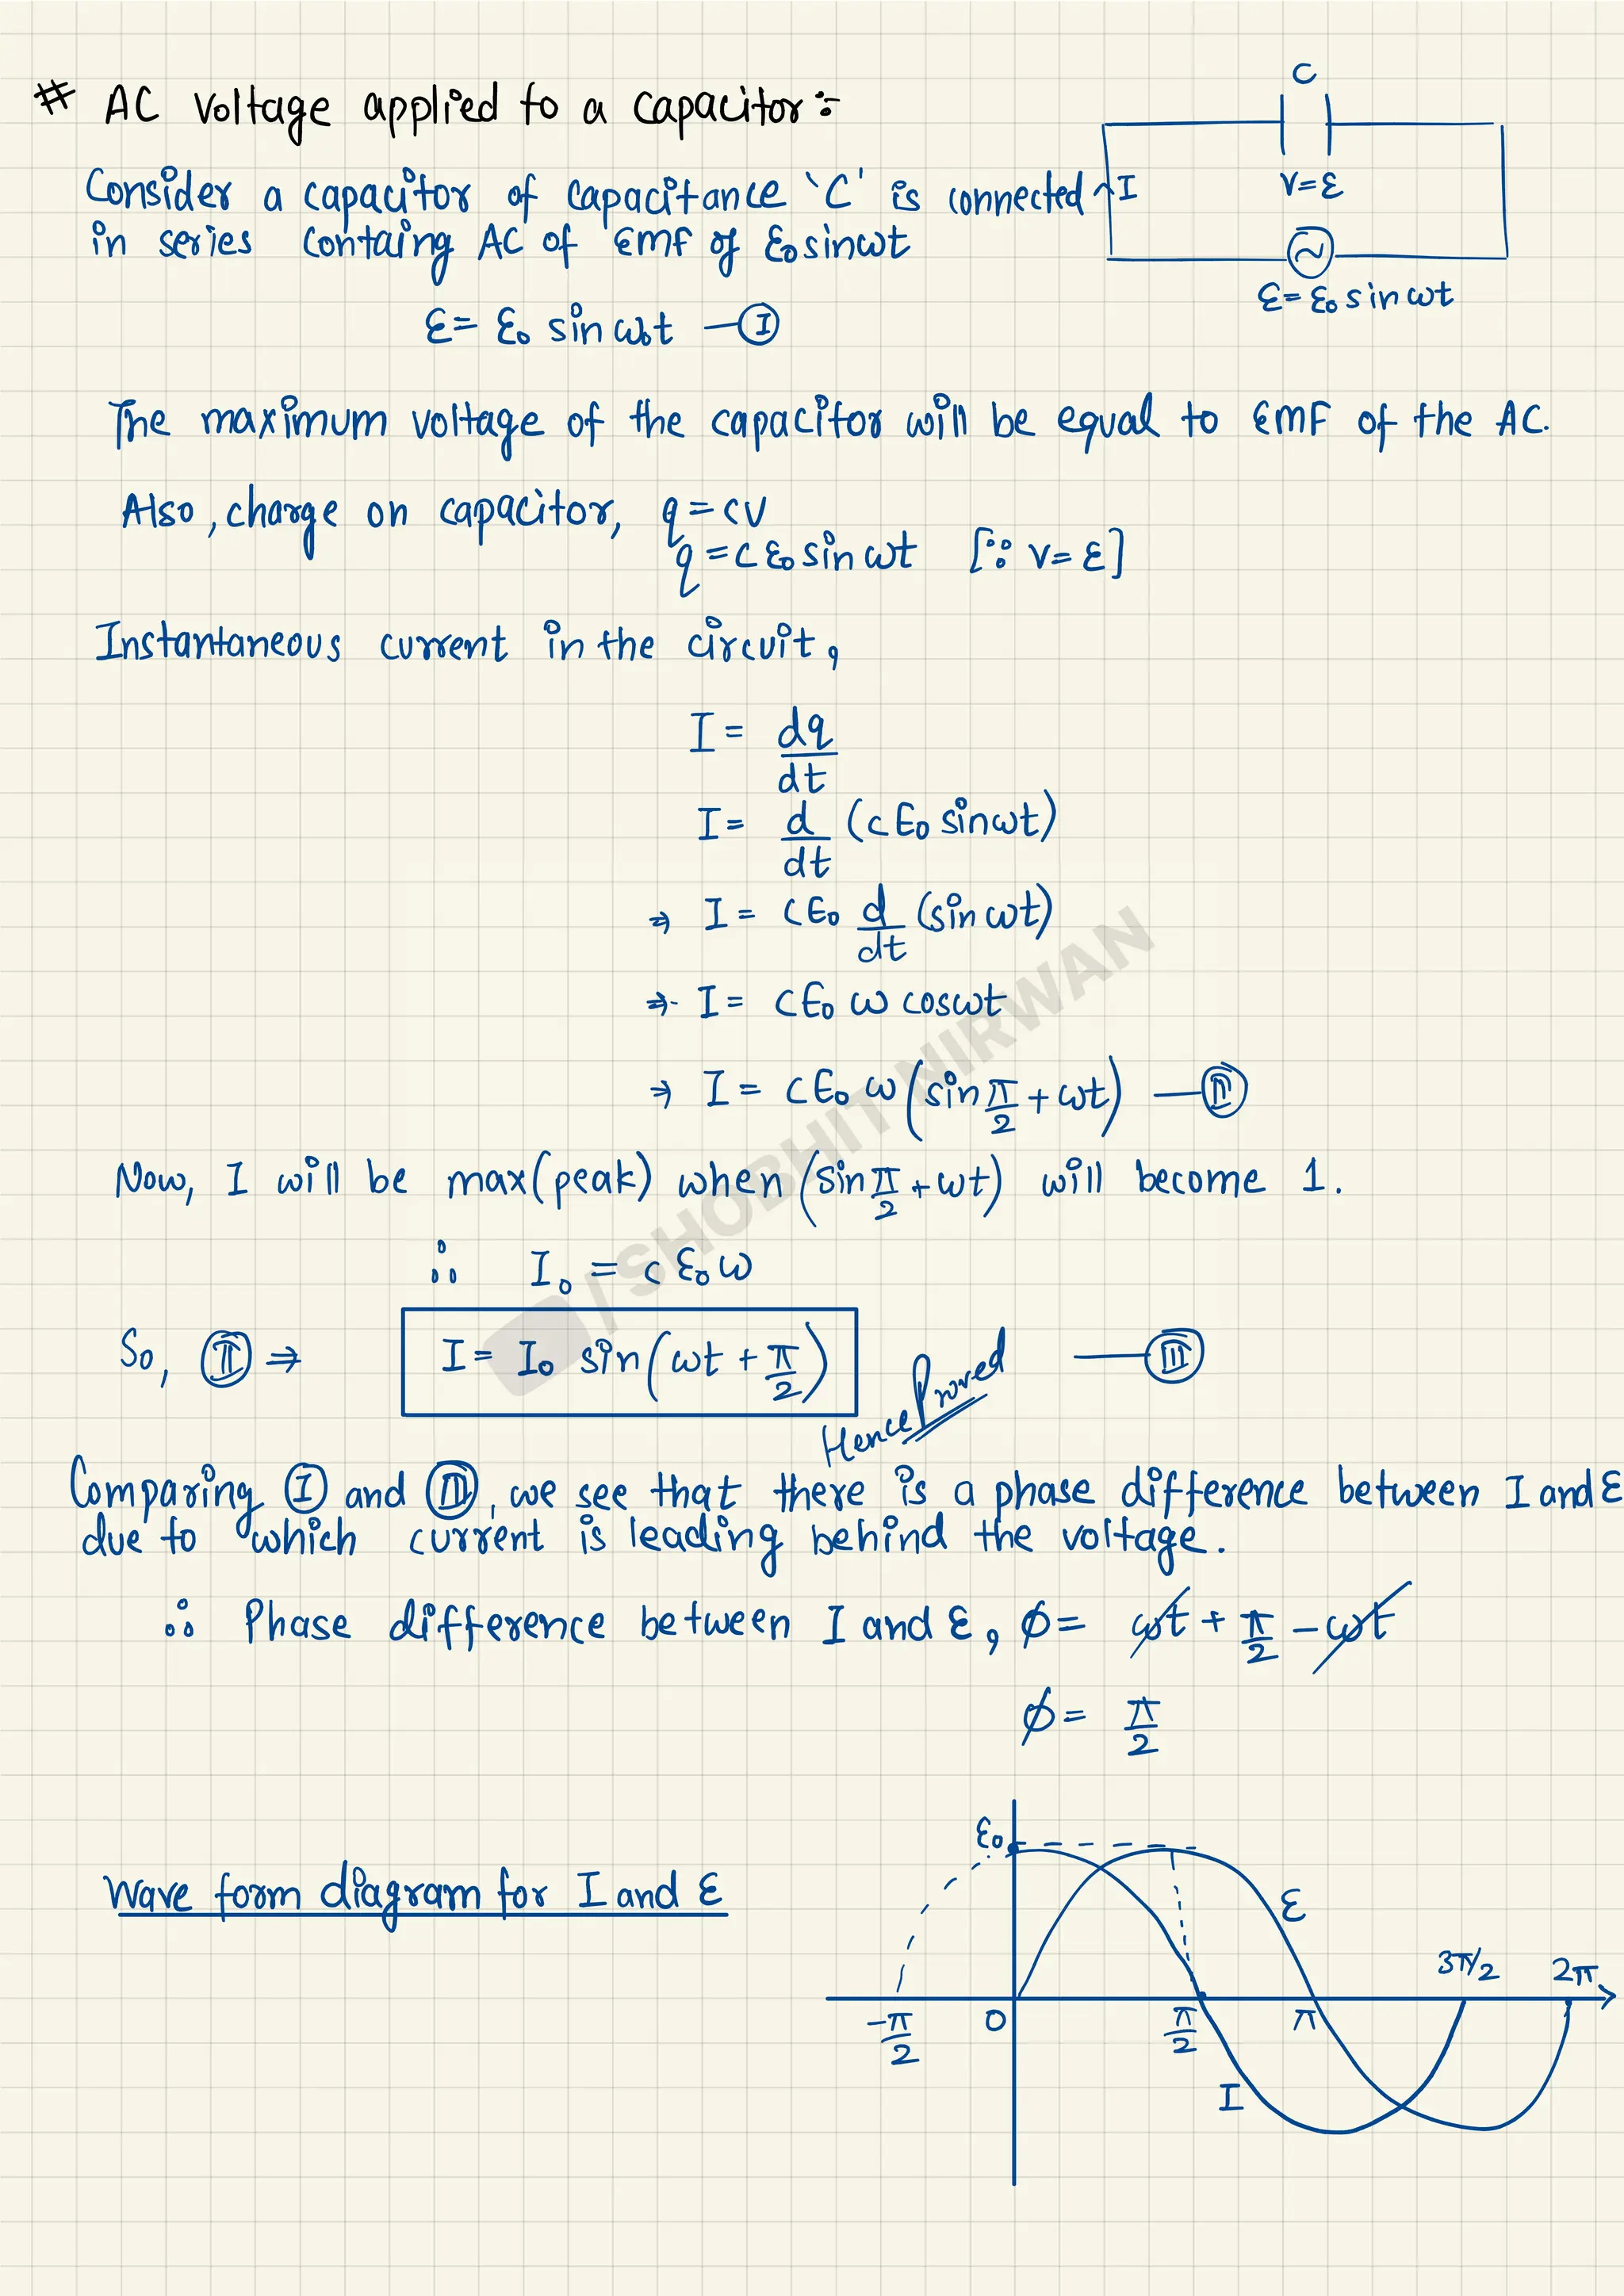 # AC Voltage applied to a capacitor:-
C
V=ε
I
ε=ε₀ sinωt
Consider a capacitor of capacitance 'C' is connected
in series containg AC of emf of ε₀sinωt
ε= ε₀ sin ω₀t —Ⓘ
The maximum voltage of the capacitor will be equal to EMF of the AC.
Also, charge on capacitor, q=CV
q=Cε₀sinωt [∵ V=ε]
Instantaneous current in the circuit,
I= dq/dt
I= d/dt (CE₀ sinωt)
⇒ I= CE₀ d/dt (sinωt)
⇒ I= CE₀ ω cosωt
⇒ I= CE₀ ω(sin π/2 + ωt) —(II)
Now, I will be max(peak) when (sin π/2 + ωt) will become 1.
∴ I₀ = Cε₀ω
So, (II) ⇒ I= I₀ sin(ωt + π/2) —(III)
Hence Proved
Comparing (I) and (III), we see that there is a phase difference between I and ε
due to which current is leading behind the voltage.
∴ Phase difference between I and ε, φ= ωt + π/2 - ωt
φ= π/2
Wave form diagram for I and ε
ε₀
ε
3π/2 2π
-π/2 0 π/2 π
I
/SHOBHIT NIRWAN